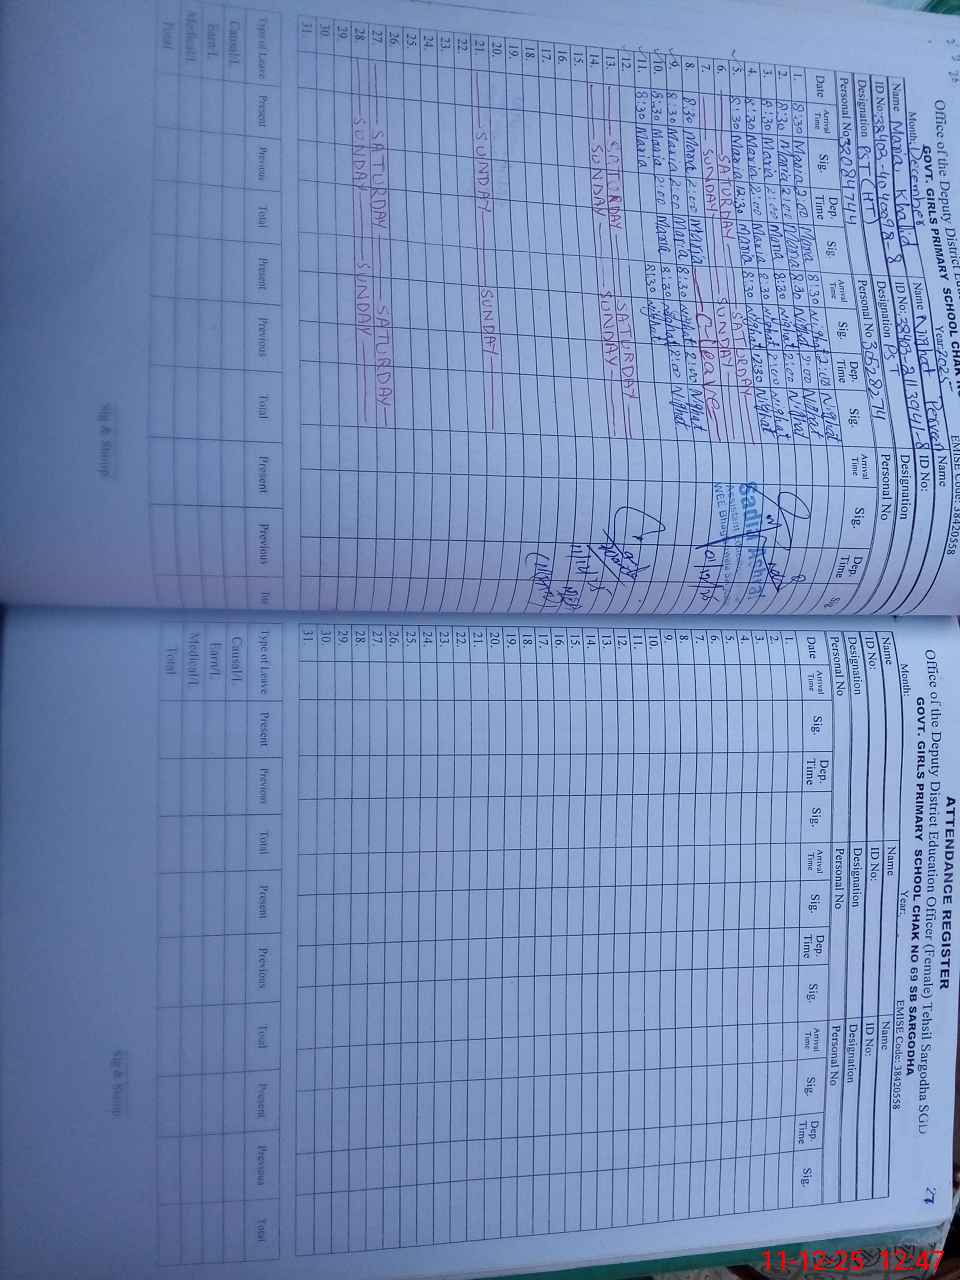 Office of the Deputy District Edu
GOVT. GIRLS PRIMARY SCHOOL CHAK N
Month: December Year: 2025 EMISE Code: 38420558
Name Maria Khalid Name Nighat Perveen Name
ID No: 38403-4040098-8 ID No: 38403-2113941-8 ID No:
Designation PST (HT) Designation PST Designation
Personal No 32084744 Personal No 30628274 Personal No
Date Arrival Time Sig. Dep. Time Sig. Arrival Time Sig. Dep. Time Sig. Arrival Time Sig. Dep. Time Sig
1. 8:30 Maria 2:00 Maria 8:30 Nighat 2:00 Nighat
2. 8:30 Maria 2:00 Maria 8:30 Nighat 2:00 Nighat
3. 8:30 Maria 2:00 Maria 8:30 Nighat 2:00 Nighat
4. 8:30 Maria 2:00 Maria 8:30 Nighat 2:00 Nighat
5. 8:30 Maria 12:30 Maria 8:30 Nighat 12:30 Nighat
6. SATURDAY SATURDAY
7. SUNDAY SUNDAY
8. 8:30 Maria 2:00 Maria C-leave
9. 8:30 Maria 2:00 Maria 8:30 Nighat 2:00 Nighat
10. 8:30 Maria 2:00 Maria 8:30 Nighat 2:00 Nighat
11. 8:30 Maria 8:30 Nighat
12.
13. SATURDAY SATURDAY
14. SUNDAY SUNDAY
15.
16.
17.
18.
19.
20.
21. SUNDAY SUNDAY
22.
23.
24.
25.
26.
27. SATURDAY SATURDAY
28. SUNDAY SUNDAY
29.
30.
31.
Type of Leave Present Previous Total Present Previous Total Present Previous To
Causal/L
Earn/L
Medical/L
Total
Sig & Stamp
01/12/25
11/12/25
ATTENDANCE REGISTER
Office of the Deputy District Education Officer (Female) Tehsil Sargodha SGD
GOVT. GIRLS PRIMARY SCHOOL CHAK NO 69 SB SARGODHA
Month: Year: EMISE Code: 38420558
Name Name Name
ID No: ID No: ID No:
Designation Designation Designation
Personal No Personal No Personal No
Date Arrival Time Sig. Dep. Time Sig. Arrival Time Sig. Dep. Time Sig. Arrival Time Sig. Dep. Time Sig.
1.
2.
3.
4.
5.
6.
7.
8.
9.
10.
11.
12.
13.
14.
15.
16.
17.
18.
19.
20.
21.
22.
23.
24.
25.
26.
27.
28.
29.
30.
31.
Type of Leave Present Previous Total Present Previous Total Present Previous Total
Causal/L
Earn/L
Medical/L
Total
Sig & Stamp
11-12-25 12:47